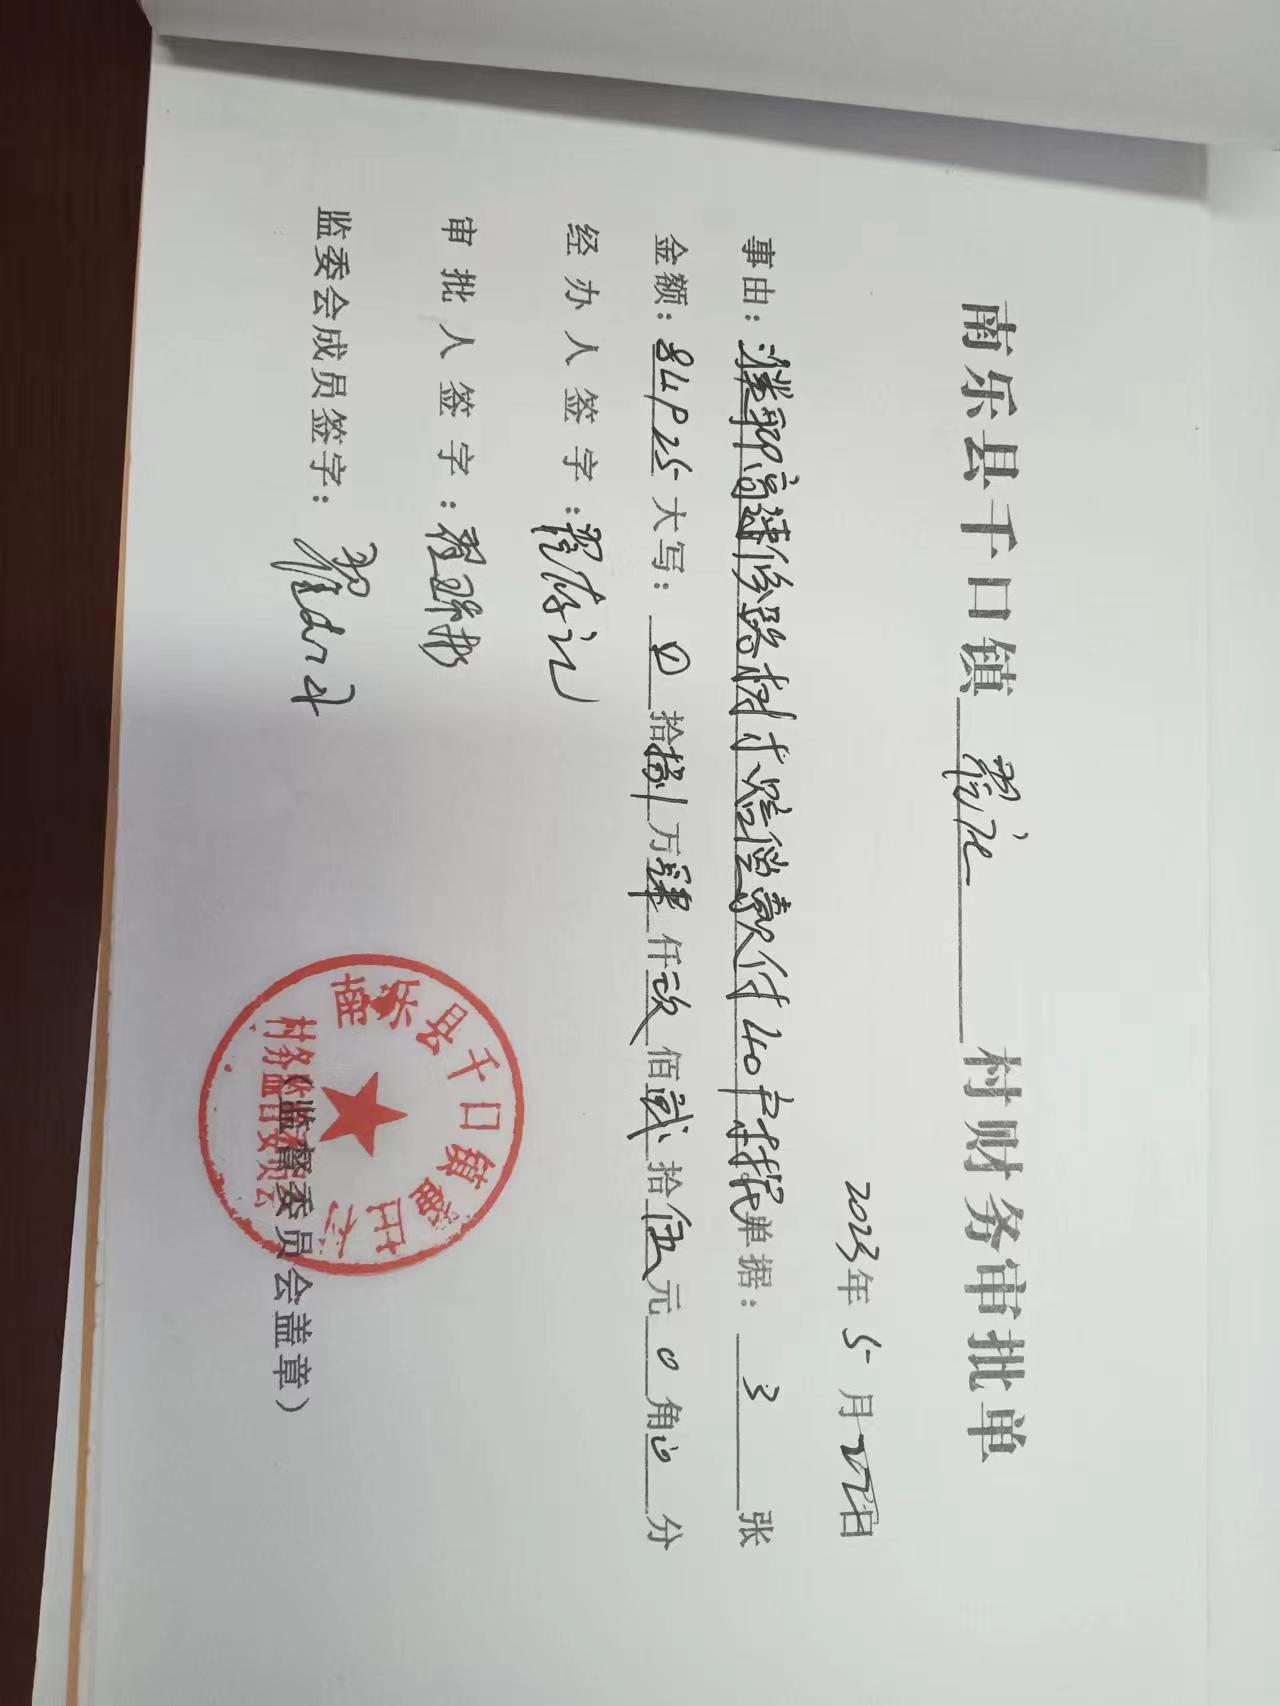 南乐县千口镇翟庄村财务审批单
2023年5月22日
事由：濮聊高速修路树木赔偿款付40户 单据：3张
金额：84925大写：0拾捌万肆仟玖佰贰拾伍元0角0分
经办人签字：翟
审批人签字：翟
监委会成员签字：翟
（监督委员会盖章）
南乐县千口镇翟庄村
村务监督委员会